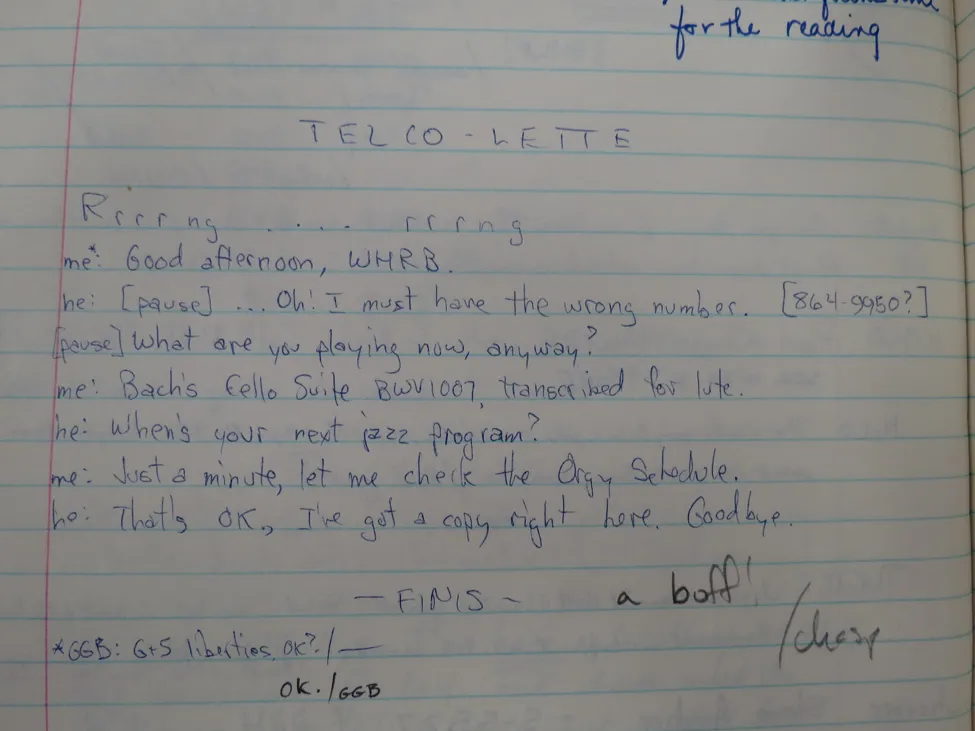 for the reading
TELCO-LETTE
Rrrrng .... rrrng
me*: Good afternoon, WHRB.
he: [pause] ... Oh! I must have the wrong number. [864-9950?]
[pause] What are you playing now, anyway?
me: Bach's Cello Suite BWV1007, transcribed for lute.
he: When's your next jazz program?
me: Just a minute, let me check the Orgy Schedule.
he: That's OK, I've got a copy right here. Goodbye.
— FINIS —
a boff!
*GGB: G+S liberties, OK?/—
OK./GGB